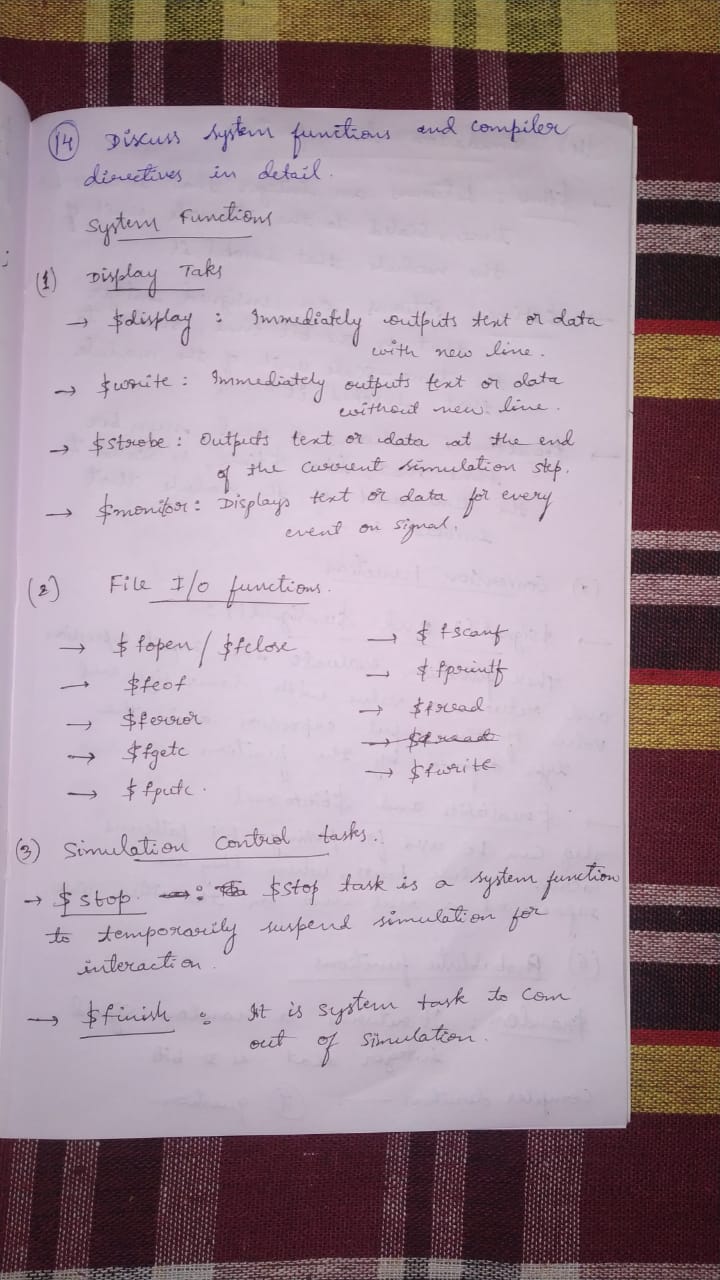 14 Discuss system functions and compiler
directives in detail.
System Functions
(1) Display Taks
→ $display : Immediately outputs text or data
with new line.
→ $write : Immediately outputs text or data
without new line.
→ $strobe : Outputs text or data at the end
of the current simulation step.
→ $monitor : Displays text or data for every
event on signal.
(2) File I/O functions.
→ $fopen / $fclose
→ $feof
→ $ferror
→ $fgetc
→ $fputc.
→ $fscanf
→ $fprintf
→ $fread
→ $fread
→ $fwrite
(3) Simulation Control tasks.
→ $stop : $stop task is a system function
to temporarily suspend simulation for
interaction.
→ $finish : It is system task to com
out of simulation.